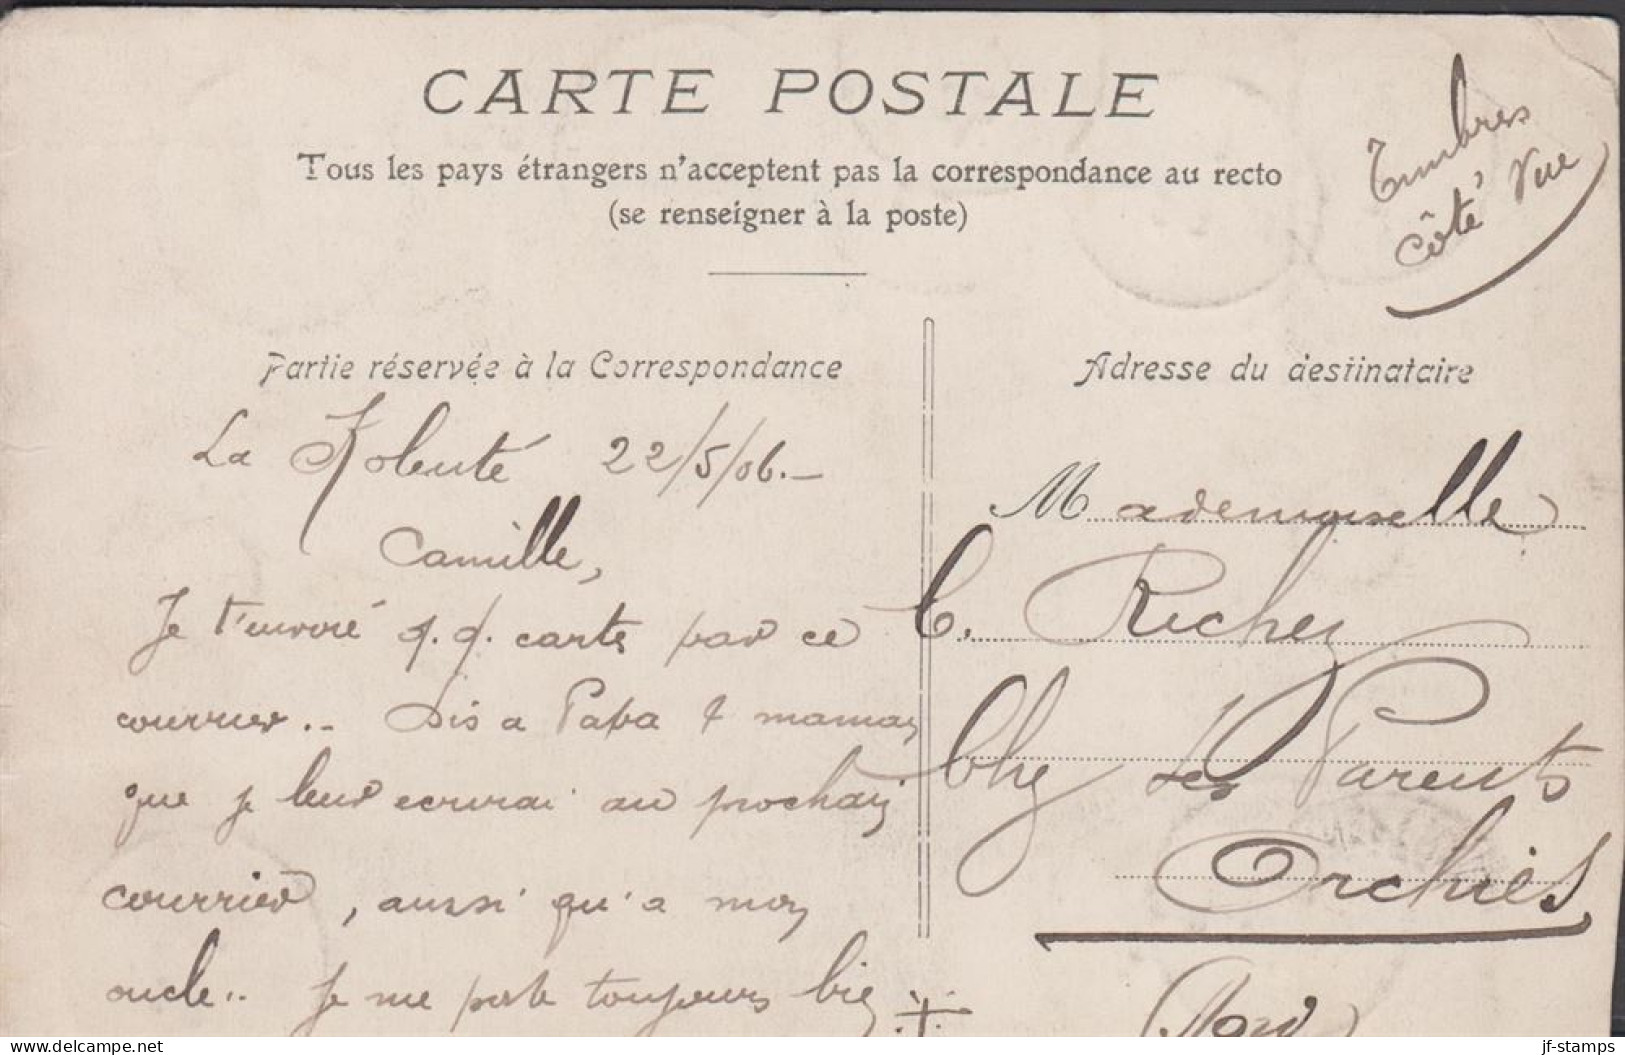 CARTE POSTALE
Tous les pays étrangers n'acceptent pas la correspondance au recto
(se renseigner à la poste)
Timbres
côté vue
Partie réservée à la Correspondance
La Kolenté 22/5/06.-
Camille,
Je t'envoie q. q. cartes par ce
courrier.. Dis a Papa & maman
que je leur ecrirai au prochain
courrier, aussi qu'a mon
oncle.. Je me porte toujours bien
Adresse du destinataire
Mademoiselle
C. Richez
Chez ses Parents
Orchies
(Nord)
© jf-stamps
delcampe.net